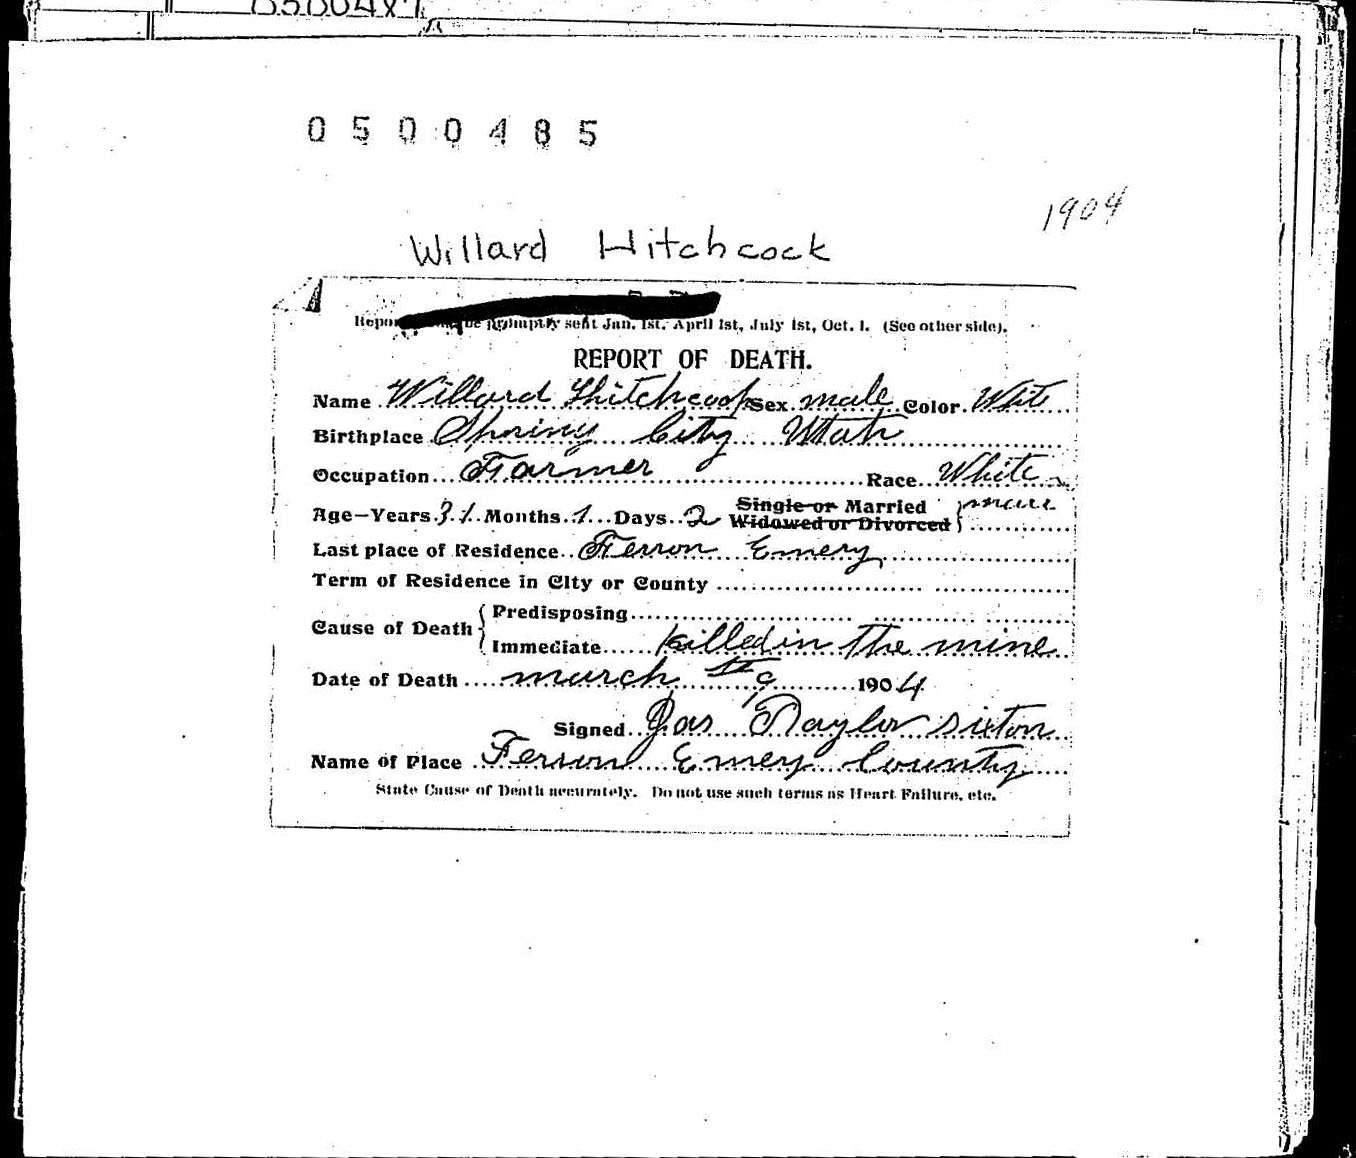 0500485
1904
Willard Hitchcock
be promptly sent Jan. 1st. April 1st, July 1st, Oct. 1. (See other side).
REPORT OF DEATH.
Name Willard Hitchcock Sex male Color White
Birthplace Spring City Utah
Occupation Farmer Race White
Age—Years 31 Months 1 Days 2 Single or Married
Widowed or Divorced
Last place of Residence Ferron Emery
Term of Residence in City or County
Predisposing
Cause of Death
Immediate killed in the mine
Date of Death march 9 1904
Signed Jas Taylor sixton
Name of Place Ferron Emery County
State Cause of Death accurately. Do not use such terms as Heart Failure, etc.